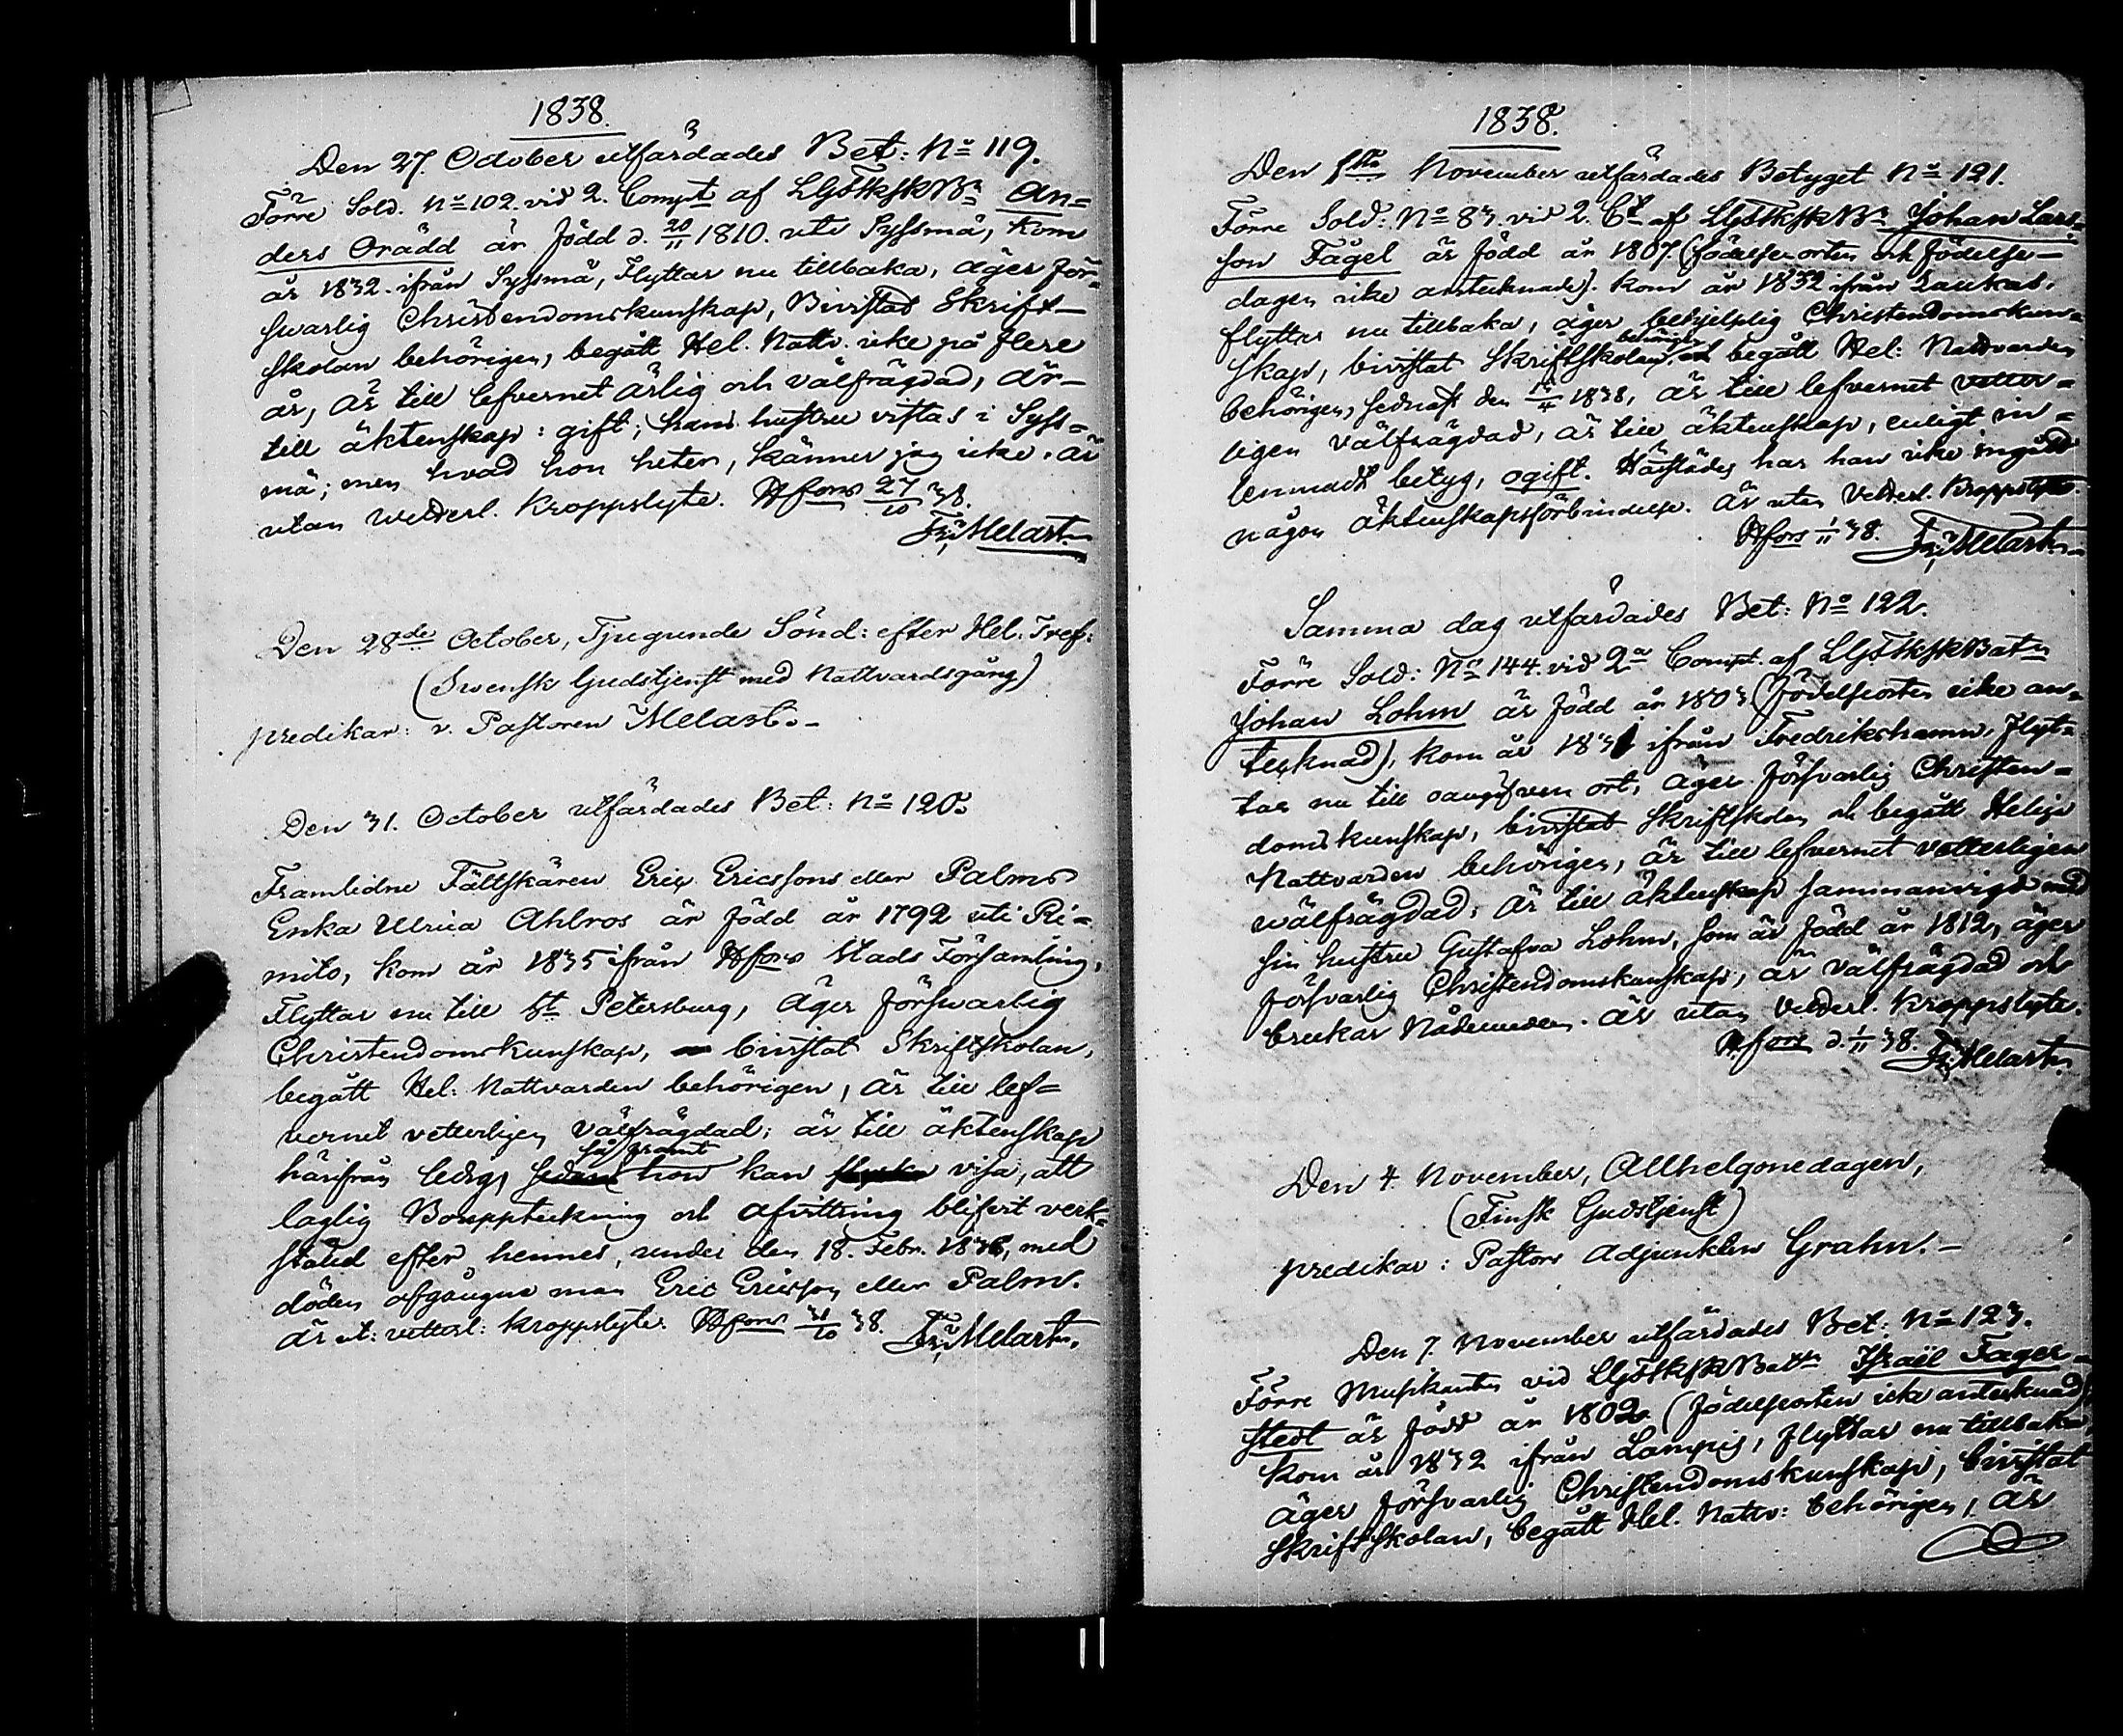 1838.
Den 27. October utfärdades Bet: No 119.
Förre Sold. No 102. vid 2. Compt af LGdFkSkBn An=
ders Orädd är född d. 20/11 1810. uti Syssmä, kom
år 1832. ifrån Syssmä, Flyttar nu tillbaka, äger för=
svarlig Christendomskunskap, Bivistat Skrift-
skolan behörigen, begått Hel. Nattv. icke på flere
år, är till lefvernet ärlig och välfrägdad, är-
till äktenskap: gift; hans hustru vistas i Syss=
mä; men hvad hon heter, känner jag icke. är
utan vetterl. kroppslyte. Hfors 27/10 38.
Fr: Melart.
Den 28de October, Tjugunde Sönd: efter Hel. Tref:
(Svensk Gudstjenst med Nattvardsgång)
predikar: v. Pastoren Melart.-
Den 31. October utfärdades Bet: No 120.
Framlidne Fältskären Eric Ericssons eller Palms
Enka Ulrica Ahlros är född år 1792 uti Ri=
mito, kom år 1835 ifrån Hfors Stads Församling,
Flyttar nu till St Petersburg, äger försvarlig
Christendomskunskap, bivistat Skriftskolan,
begått Hel: Nattvarden behörigen, är till lef=
vernet vetterligen välfrägdad; är till äktenskap
så framt
härifrån ledig, hon kan visa, att
laglig Bouppteckning och afvittring blifvit verk=
stäld efter hennes, under den 18. Febr. 1836, med
döden afgångne man Eric Ericsson eller Palm.
är ut: vetterl: kroppslyte. Hfors 31/10 38. Fr: Melart.
1838.
Den 1sta November utfärdades Betyget No 121.
Förre Sold: No 83. vid 2. Ct af LGdFkSkBn Johan Lars=
son Fågel är född år 1807. (födelseorten och födelse-
dagen icke antecknade). kom år 1832 ifrån Laukas.
flyttar nu tillbaka, äger behjelplig Christendomskun=
behörigen
skap, bivistat Skriftskolan, begått Hel: Nattvarden
behörigen, sednast den 15/4 1838, är till lefvernet vetter=
ligen välfrägdad, är till äktenskap, enligt in=
lemnadt betyg, ogift. Härstädes har han icke ingått
någon äktenskapsförbindelse. är utan vetterl. kroppslyte.
Hfors 1/11 38. Fr: Melart.
Samma dag utfärdades Bet: No 122.
Förre Sold: No 144. vid 2a Compt. af LGdFkSkBatn
Johan Lohm är född år 1803 (födelseorten icke an=
tecknad), kom år 1831 ifrån Fredrikshamn, flyt=
tar nu till oangifven ort, äger försvarlig Christen=
domskunskap, bivistat Skriftskolan och begått Heliga
Nattvarden behörigen, är till lefvernet vetterligen
wälfrägdad; är till äktenskap sammanvigd med
sin hustru Gustafva Lohm, som är född år 1812, äger
försvarlig Christendomskunskap, är välfrägdad och
brukar Nådemedlen. är utan vetterl. kroppslyte.
Hfors d. 1/11 38. Fr: Melart.
Den 4. November, Allhelgonedagen,
(Finsk Gudstjenst)
predikar: Pastors Adjunkten Grahn.-
Den 7. November utfärdades Bet: No 123.
Förre Musikanten vid LGdFkSkBattn Israël Fager=
stedt är född år 1802. (födelseorten icke antecknad),
kom år 1832 ifrån Lampis, flyttar nu tillbaka,
äger försvarlig Christendomskunskap, bivistat
Skriftskolan, begått Hel. Nattv: behörigen, är